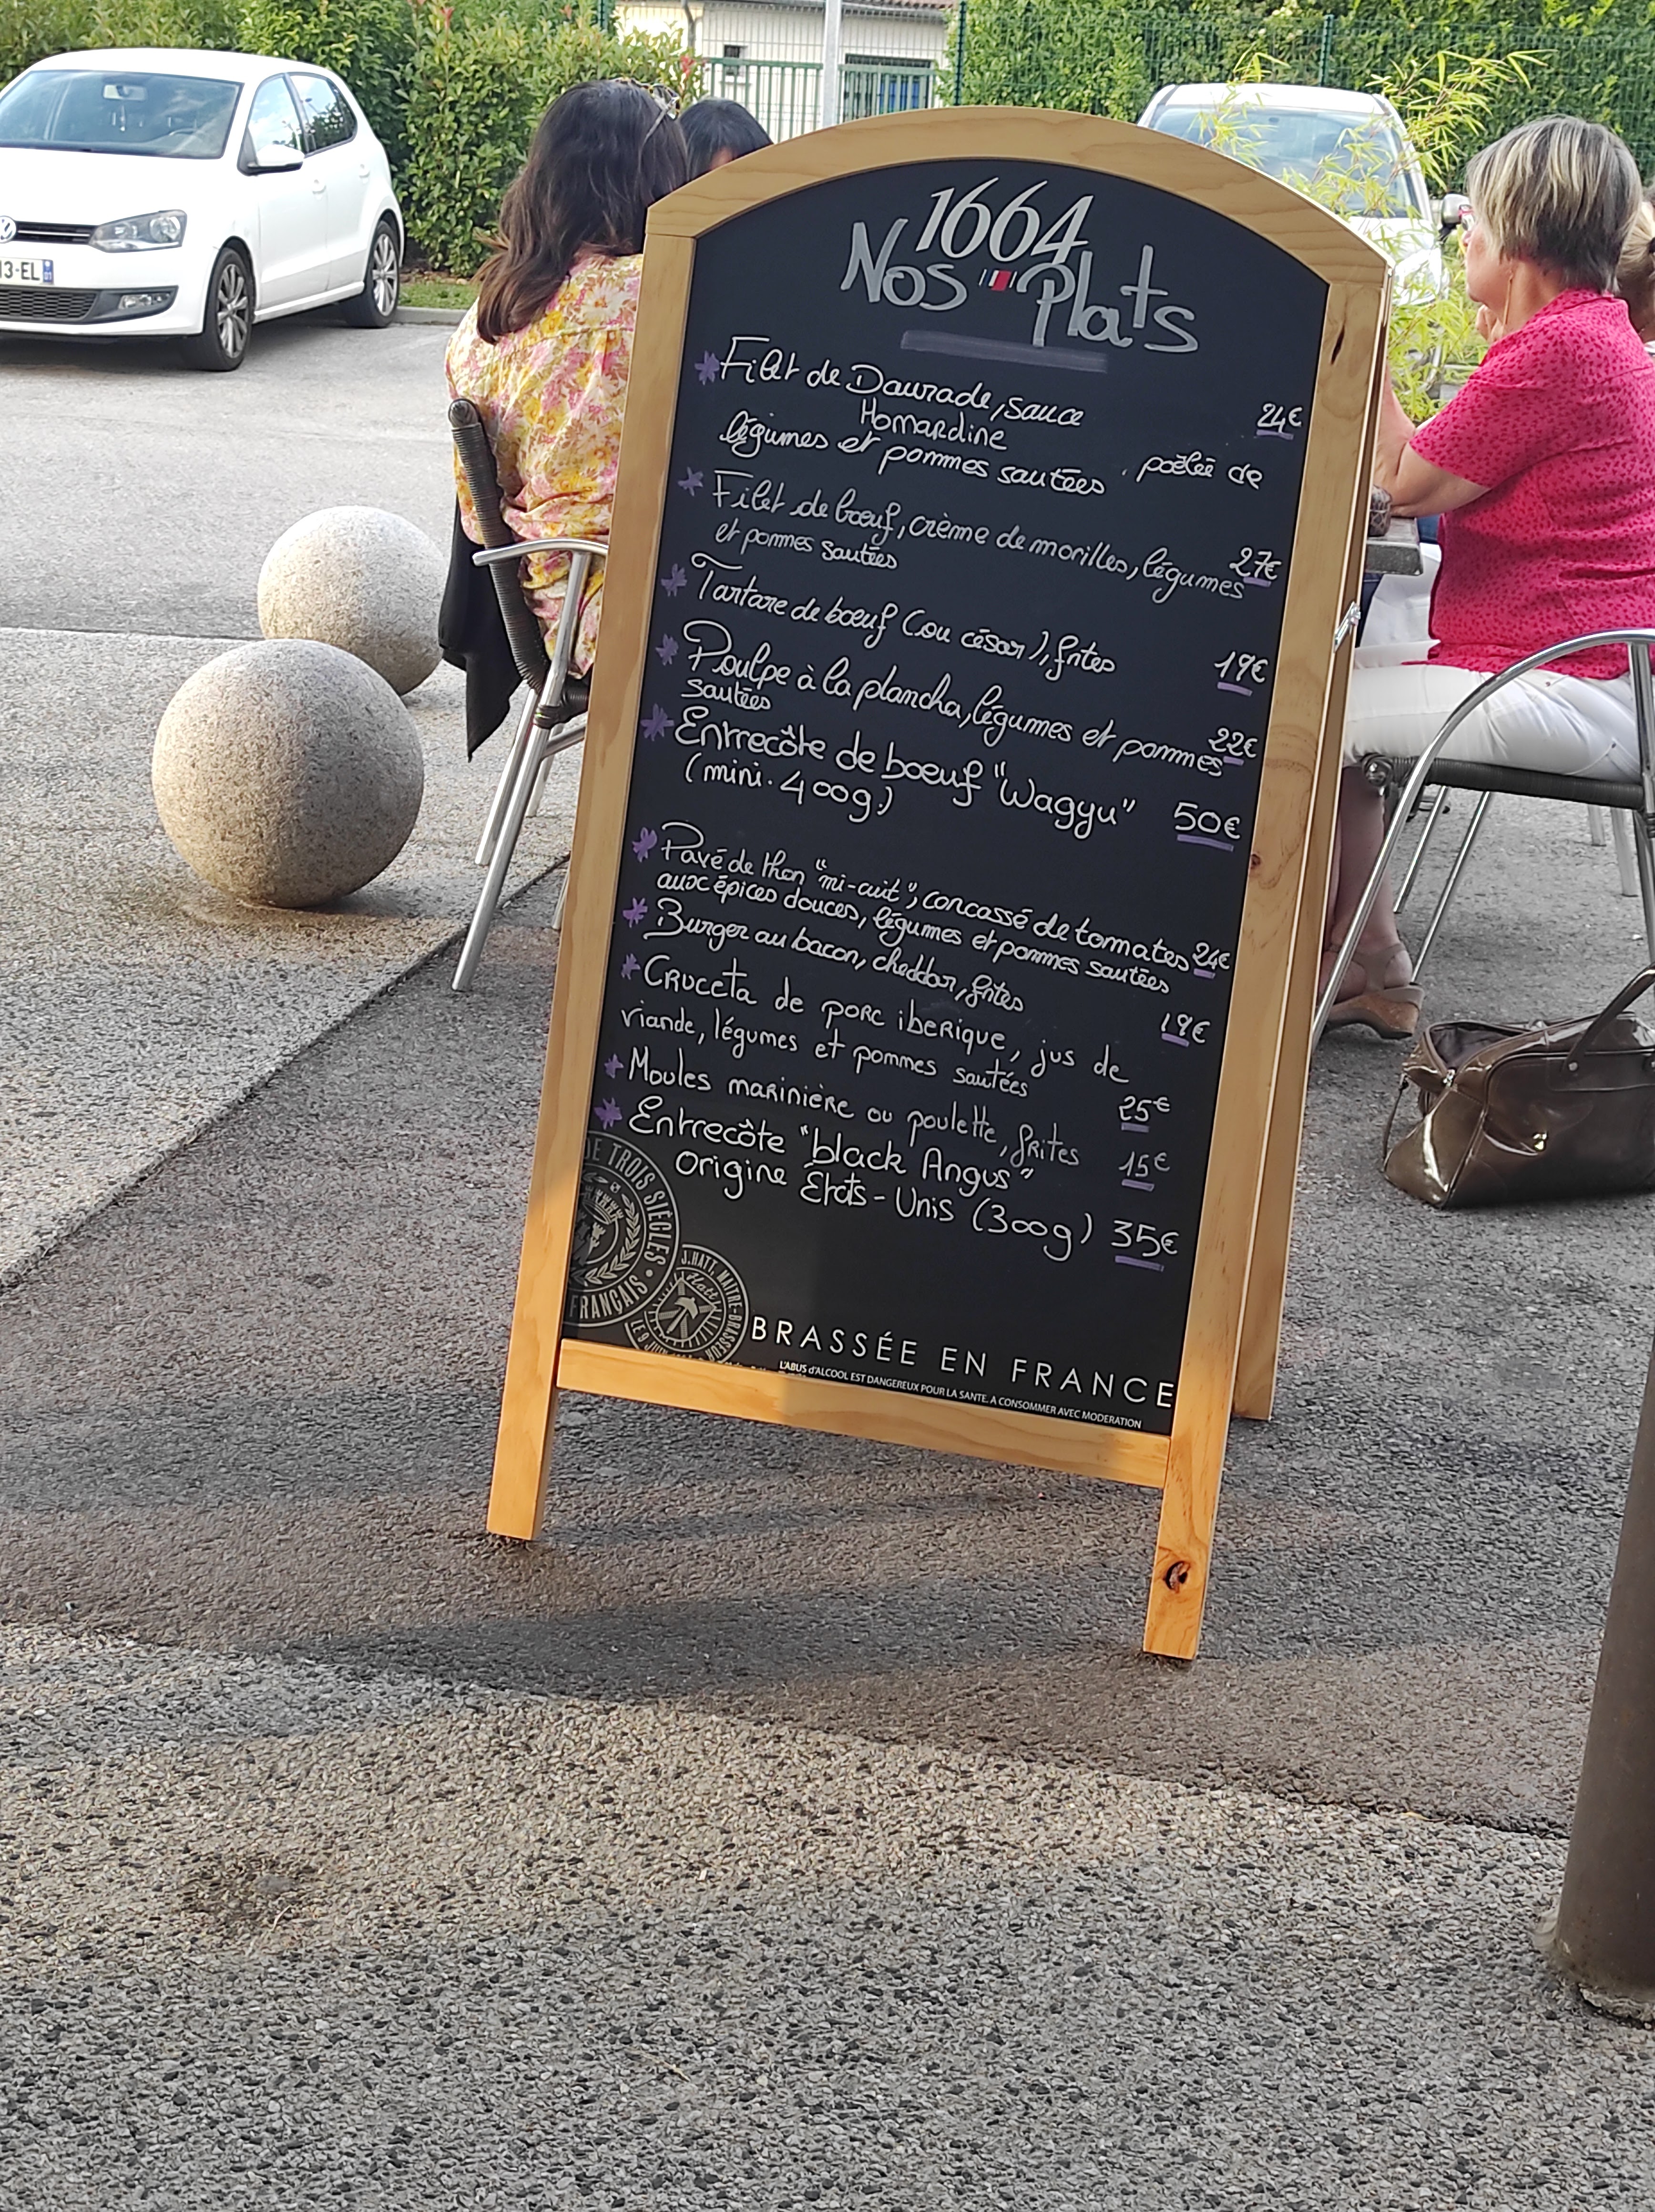 13-EL
01
1664
Nos Plats
Filet de Daurade, sauce 24€
Homardine
légumes et pommes sautées. poêlée de
Filet de bœuf, crème de morilles, légumes 27€
et pommes sautées
Tartare de bœuf (ou césar), frites 19€
Poulpe à la plancha, légumes et pommes 22€
sautées
Entrecôte de boeuf "Wagyu" 50€
(mini. 400g)
Pavé de thon "mi-cuit", concassé de tomates 24€
aux épices douces, légumes et pommes sautées
Burger au bacon, cheddar, frites 19€
Cruceta de porc iberique, jus de
viande, légumes et pommes sautées 25€
Moules marinière ou poulette, frites 15€
Entrecôte "black Angus"
origine États-Unis (300g) 35€
DE TROIS SIÈCLES •
FRANÇAIS
J.HATT MAITRE-BRASSEUR
Hatt
LE 9 JUIN
BRASSÉE EN FRANCE
L'ABUS d'ALCOOL EST DANGEREUX POUR LA SANTE. A CONSOMMER AVEC MODERATION